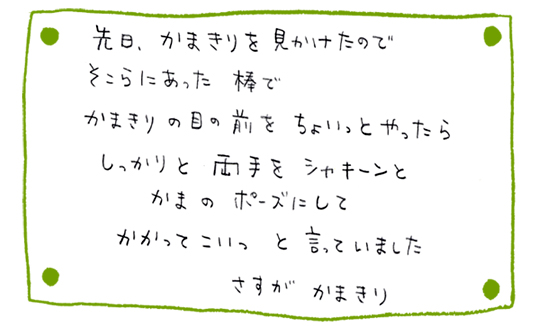 先日、かまきりを見かけたので
そこらにあった 棒で
かまきりの目の前を ちょいっとやったら
しっかりと 両手を シャキーンと
かまの ポーズにして
かかってこいっ と 言っていました
さすが かまきり